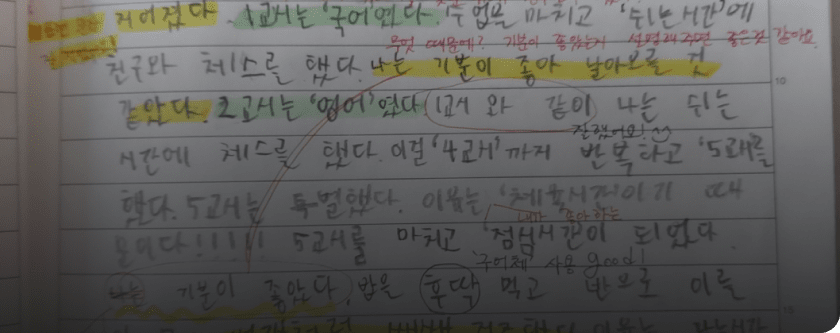 지어졌다. 1교시는 '국어'였다. 수업을 마치고 '쉬는시간'에
무엇 때문에? 기분이 좋았는지 설명해주면 좋은것 같아요
친구와 체스를 했다. 나는 기분이 좋아 날아오를 것
같았다. 2교시는 '영어'였다 1교시 와 같이 나는 쉬는
잘했어요!
시간에 체스를 했다. 이걸 '4교시'까지 반복하고 '5교시를
했다. 5교시는 특별했다. 이유는 '체육시간'이기 때
내가 좋아하는
문이다!!!!! 5교시를 마치고 '점심시간이 되었다.
'구어체' 사용 good!
나는 기분이 좋았다. 밥을 후딱 먹고 반으로 이를